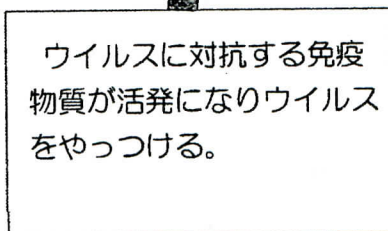 ウイルスに対抗する免疫
物質が活発になりウイルス
をやっつける。